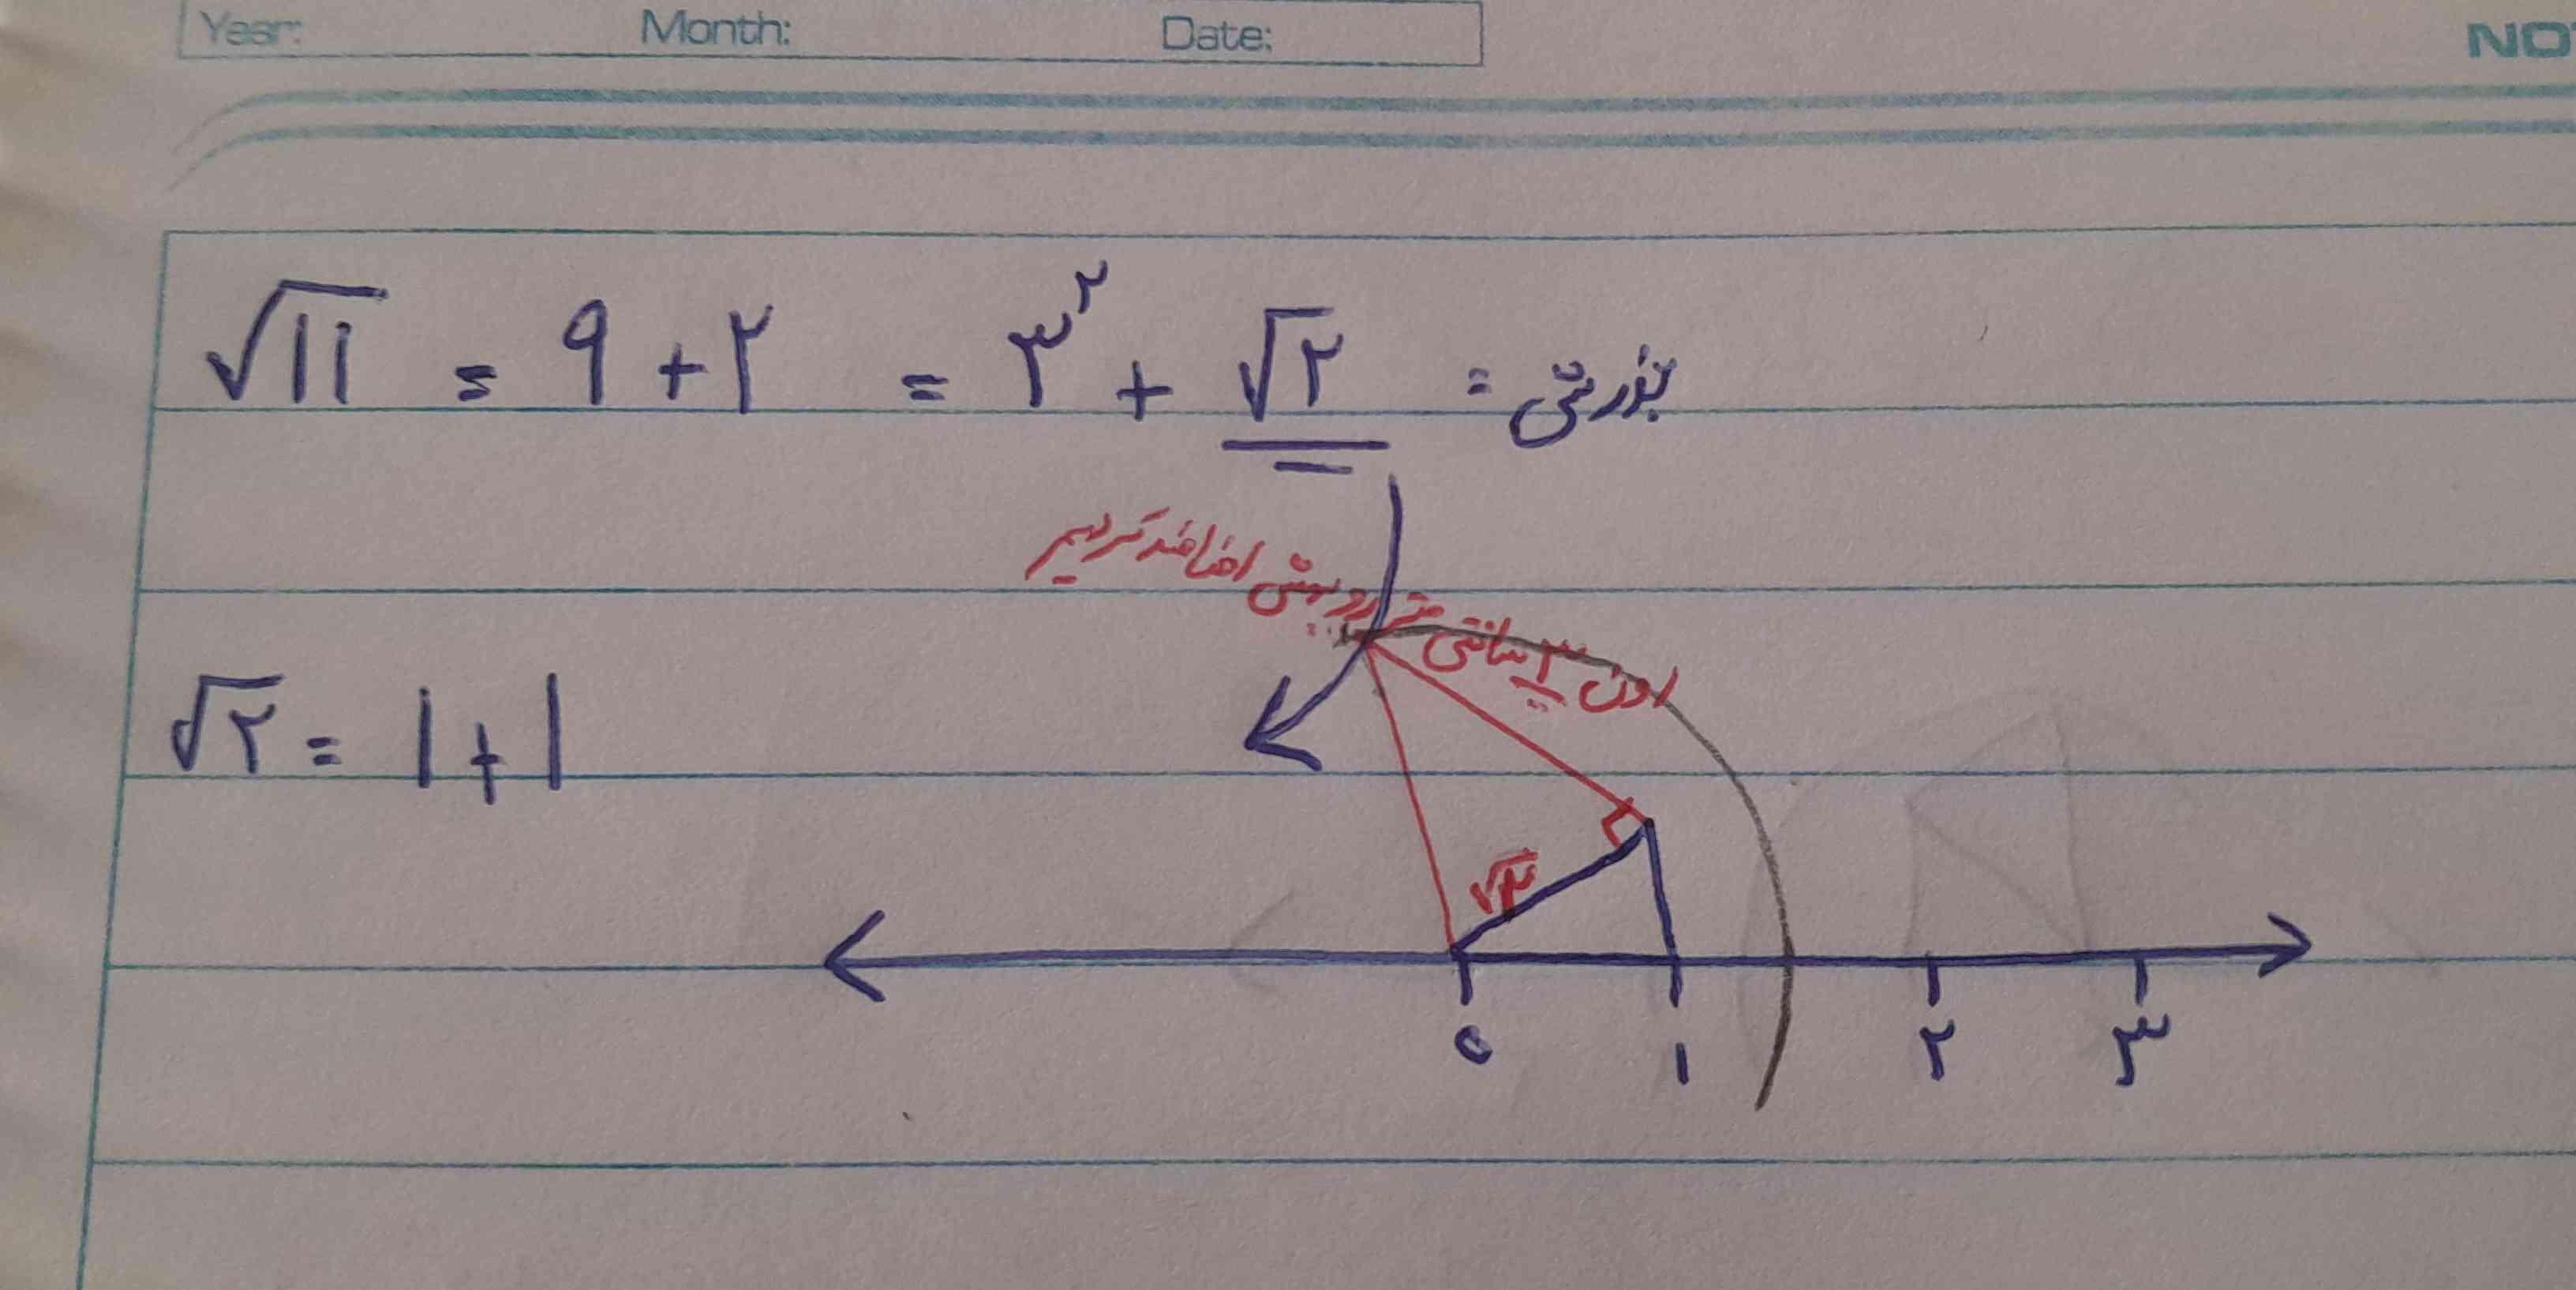 Year: Month: Date:
√۱۱ = ۹ + ۲ = ۳^۲ + √۲ =
اون ۳ سانتی متر رو بهش اضافه کردیم
√۲ = ۱ + ۱
√۲
۰ ۱ ۲ ۳